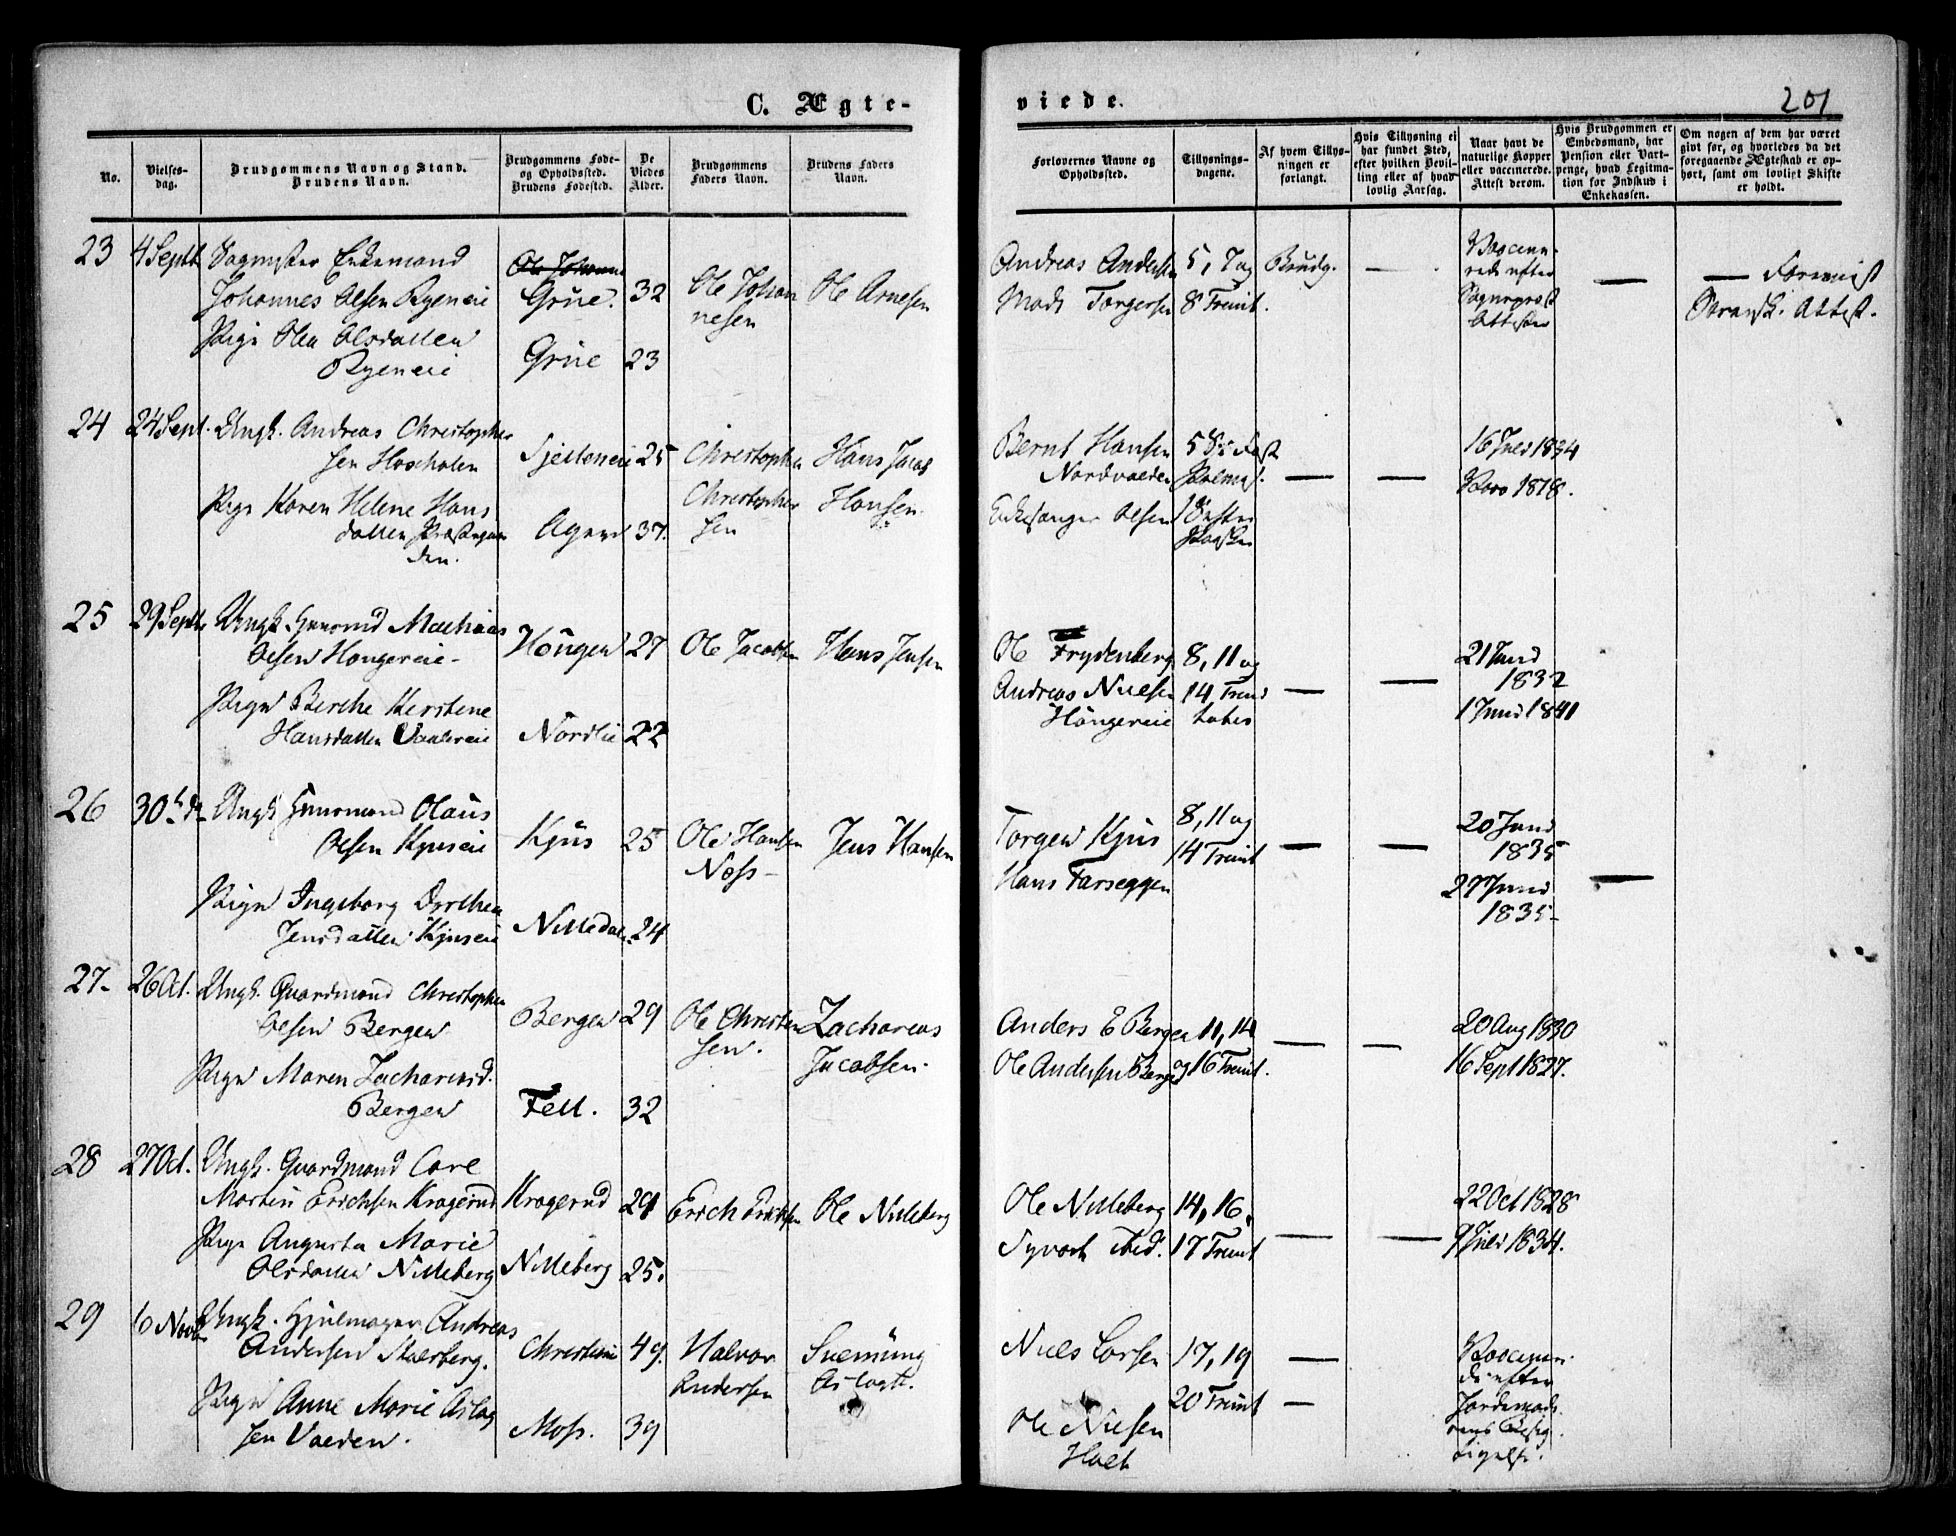 C. Ægte-
viede.
201
No.
Vielses-
dag.
Brudgommens Navn og Stand.
Brudens Navn.
Brudgommens Føde-
og Opholdssted.
Brudens Fødested.
De
Viedes
Alder.
Brudgommens
Faders Navn.
Brudens Faders
Navn.
Forlovernes Navne og
Opholdssted.
Tillysnings-
dagene.
Af hvem Tillys-
ningen er
forlangt.
Hvis Tillysning ei
har fundet Sted,
efter hvilken Bevil-
ling eller af hvad
lovlig Aarsag.
Naar havt de
naturlige Kopper
eller vaccinerede.
Attest derom.
Hvis Brudgommen er
Embedsmand, har
Pension eller Vart-
penge, hvad Legitima-
tion for Indskud i
Enkekassen.
Om nogen af dem har været
givt før, og hvorledes da det
foregaaende Ægteskab er op-
hørt, samt om lovligt Skifte
er holdt.
23
4 Septb
Enkemand
Johannes Olsen Ryeneie
Pige Olea Olsdatter
Ryeneie
Grue.
Grue
32
23
Ole Johan
nesen
Ole Arnesen
Andreas Andersen
Mads Torgersen
5, 7 og
8 Trinit.
Brudg.
—
Vaccine-
rede efter
Sognepræst
Attester
—
— Foreviist
Attest.
24
24 Sept.
Ungk. Andreas Christopher
sen
Pige Karen Helene Hans
datter
den.
Ager
25
37.
Christopher
Christopher
sen
Hans Jacob
Hansen.
Bernt Hansen
Nordvaalen
Olsen
—
—
16 Juli 1834
1818.
25
29 Septb
Ungk. Huusmd Mathias
Olsen Hougereie
Pigen Berthe Kirstine
Hansdatter Vaalereie
Hougen
Nordlie
27
22
Ole Jacobsen
Hans Jensen
Ole Frydenberg
Andreas Nielsen
Hougereie
8, 11 og
14 Trini
tatis
—
—
21 Juni
1832
1 Juni 1841
26
30te dn
Ungk Huusmand Olaus
Olsen Kjuseie
Pigen Ingeborg Dorthea
Jensdatter Kjuseie
Kjus
Nittedal
25
24
Ole Hansen
Næss
Jens Hansen
Torger Kjus
Hans Farseggen
8, 11 og
14 Trinit
—
—
20 Juni
1835
27 Juni
1835
—
27
26 Oct.
Ungk. Gaardmand Christopher
Olsen Bergen
Pigen Maren Zachariasd.
Bergen
Bergen
Fett.
29
32
Ole Christian
sen.
Zacharias
Jacobsen.
Anders E Bergen
Ole Andersen Berger
11, 14
og 16 Trinit.
—
—
20 Aug 1830
16 Sept 1827.
28
27 Oct.
Ungk. Gaardmand Carl
Martin Erichsen Kragerud
Pige Augusta Marie
Olsdatter Nitteberg
Kragerud
Nitteberg
29
25.
Erich Erichsen
Ole Nitteberg
Ole Nitteberg
Syvert ibid.
14, 16.
17 Trinit
—
—
22 Oct 1828
9 Juli 1834.
29
6 Novb
Ungk. Hjulmager Andreas
Andersen
Pigen Anne Marie Aslag
sen Vaelen.
Moss.
49.
39
Halvor
Andersen
Svenung
Aslags.
Niels Larsen
Ole Nielsen
Holt
17, 19
20 Trinit
—
—
Vaccinere-
de efter
Jordemode
rens Besig
tigelse.